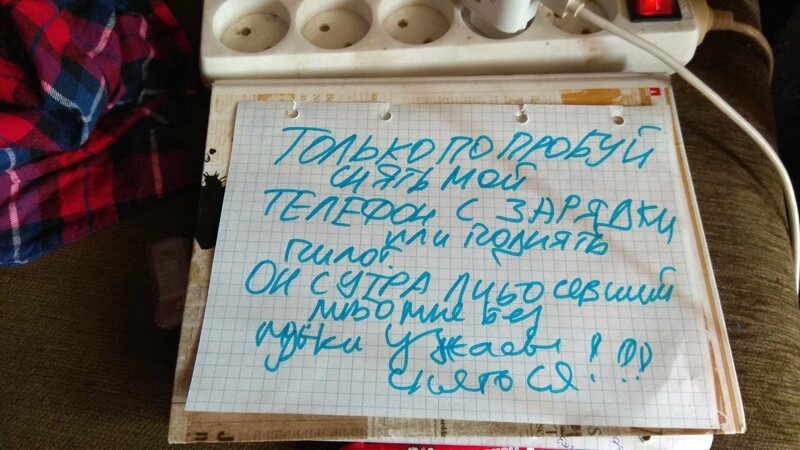 ТОЛЬКО ПОПРОБУЙ
СНЯТЬ МОЙ
ТЕЛЕФОН С ЗАРЯДКИ
ИЛИ ПОДНЯТЬ
ПИЛОТ
ОН С УТРА ЛИБО СЕВШИЙ
ЛИБО МНЕ БЕЗ
УЖАСЫ !!!!
СНЯТСЯ